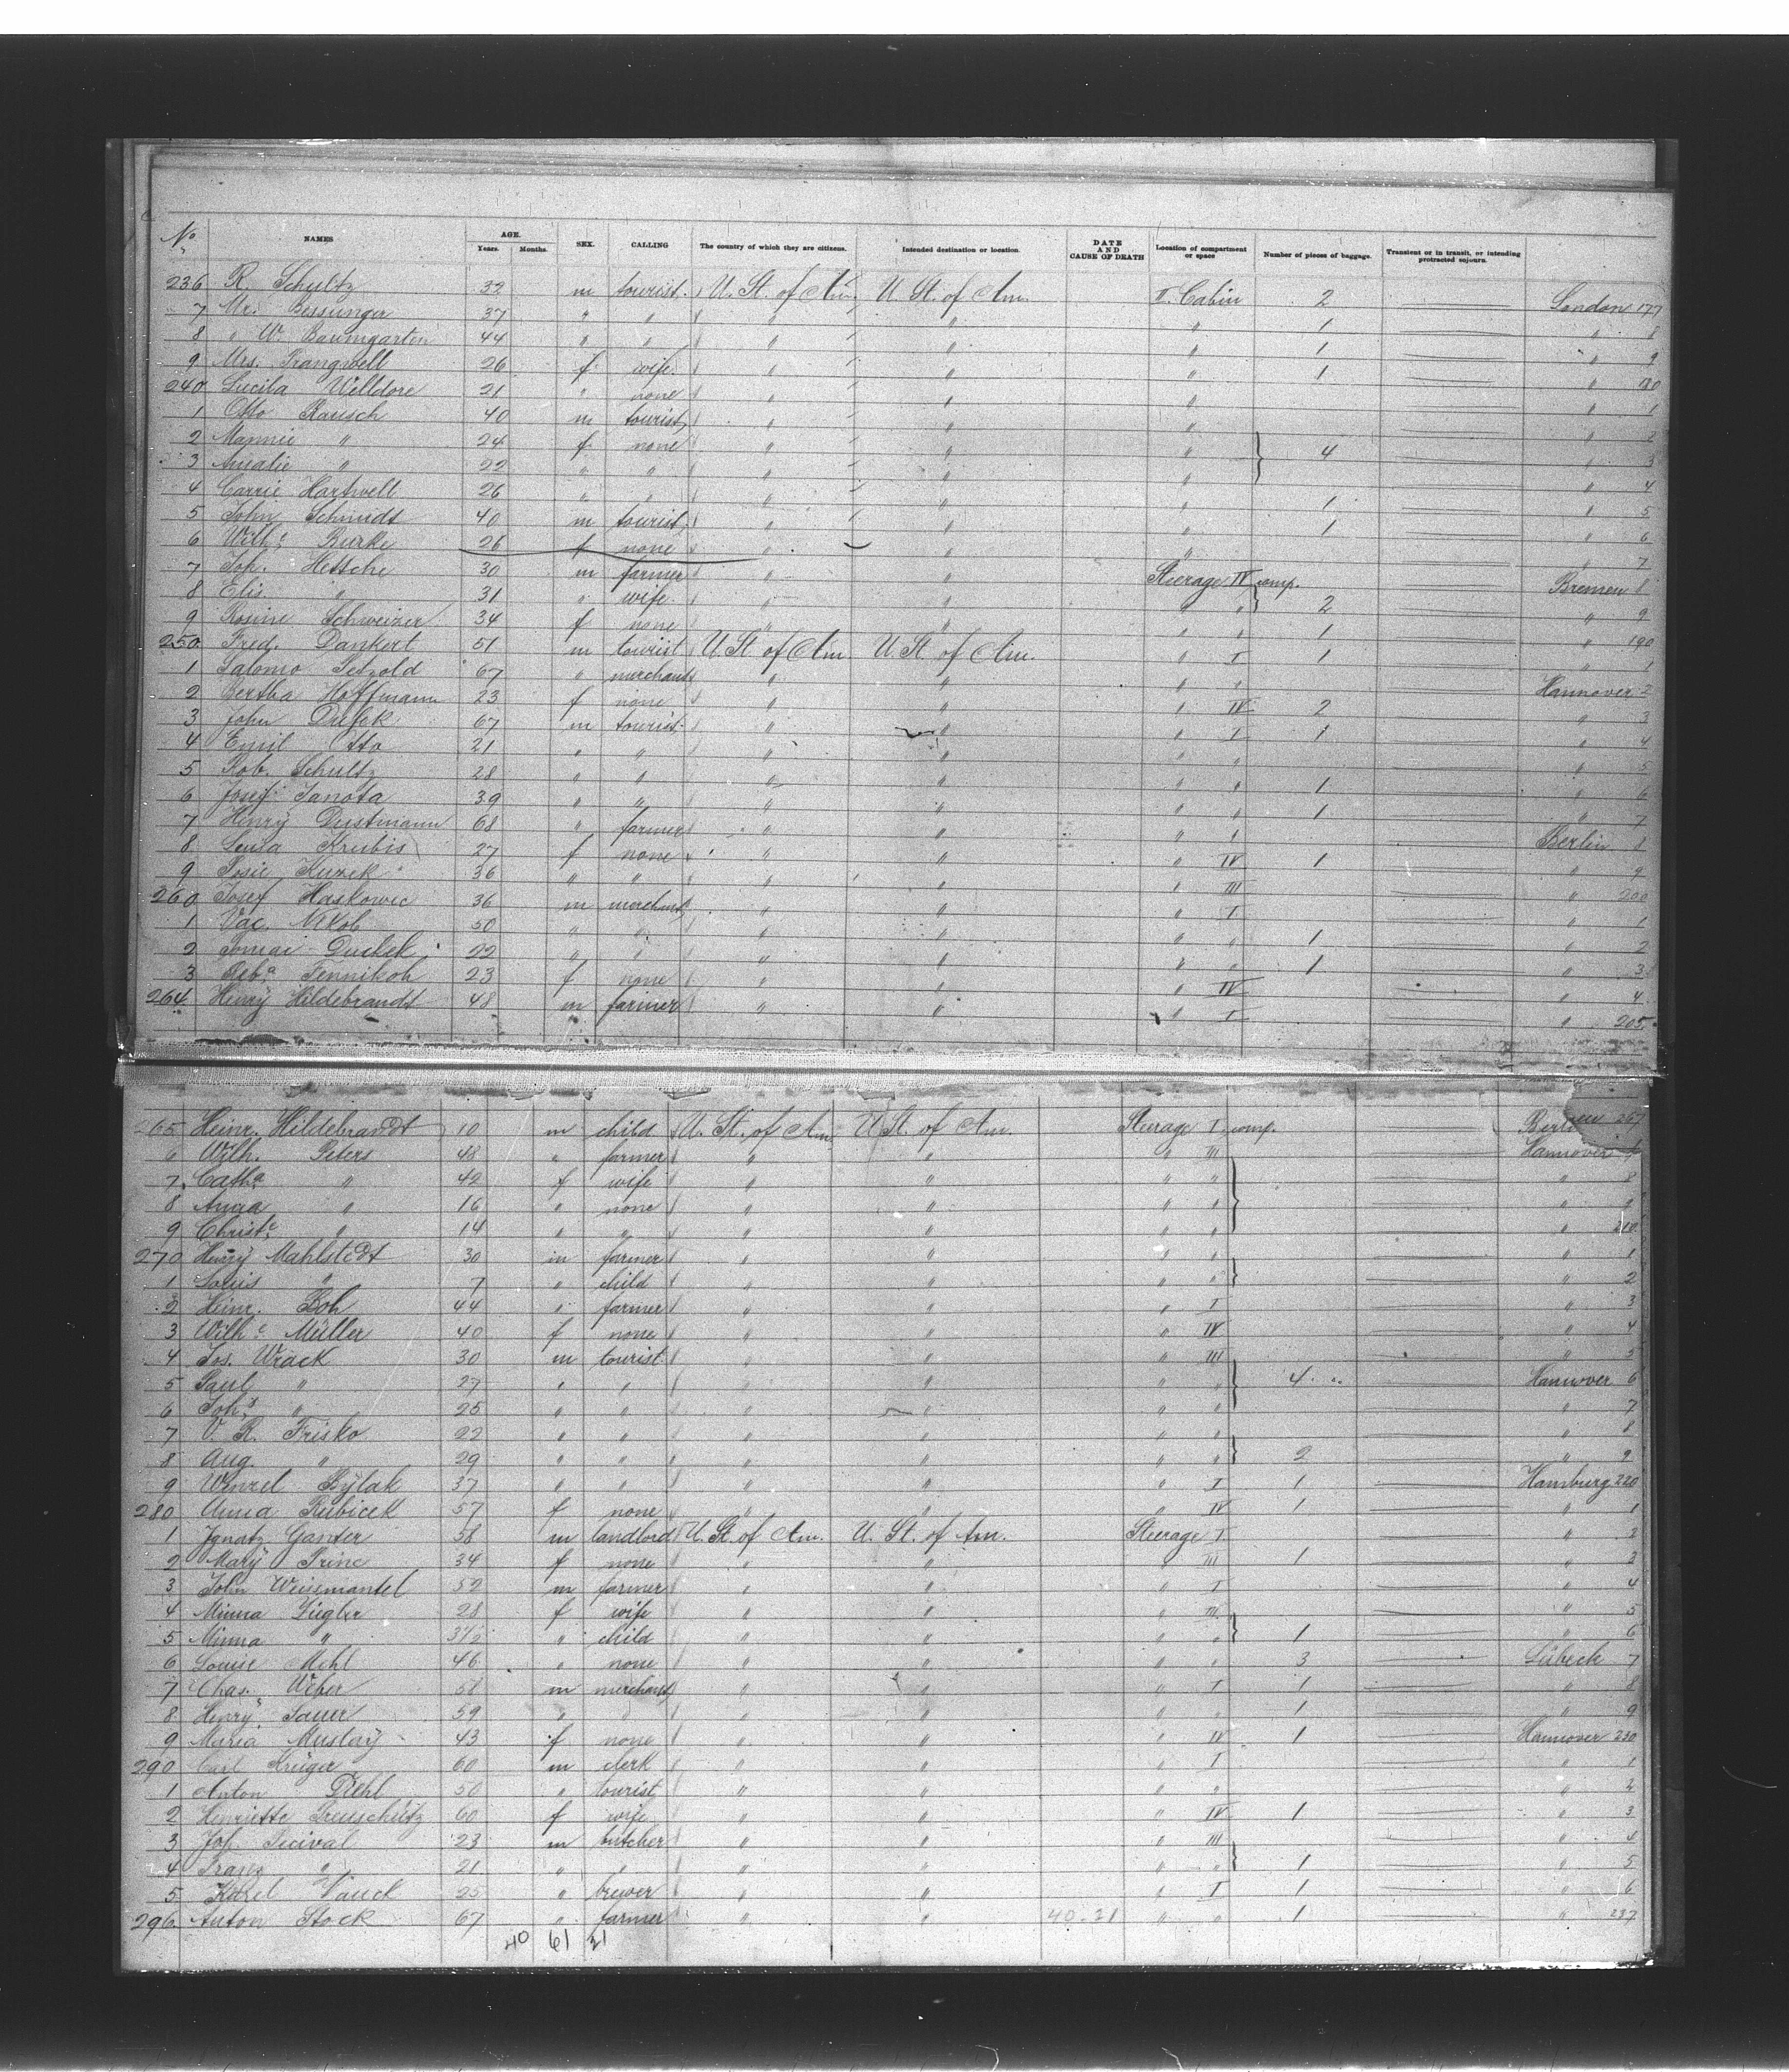 No NAMES AGE. Years. Months. SEX. CALLING The country of which they are citizens. Intended destination or location. DATE AND CAUSE OF DEATH Location of compartment or space Number of pieces of baggage. Transient or in transit, or intending protracted sojourn.
236 R. Schultz 32 m tourist U. St. of Am. U. St. of Am. II. Cabin 2 London 177
7 Mr. Bessunger 37 " " " " " 1 " 8
8 " W. Baumgarten 44 " " " " " 1 " 9
9 Mrs. Trangwell 26 f wife " " " 1 " 180
240 Lucila Willdore 21 " none " " " " 1
1 Otto Rausch 40 m tourist " " " " 2
2 Mannie " 24 f none " " " 4 " 3
3 Amalie " 22 " " " " " " 4
4 Carrie Hartwell 26 " " " " " 1 " 5
5 John Schmidt 40 m tourist " " " 1 " 6
6 Wilhe. Burke 26 f none " " " " 7
7 Joh. Hettche 30 m farmer " " Steerage IV comp. Bremen 8
8 Elis. " 31 " wife " " " " 2 " 9
9 Rosine Schweizer 34 f none " " " " 1 " 190
250 Fred. Dankert 51 m tourist U. St. of Am U. St. of Am. " I 1 " 1
1 Salomo Petzold 67 " merchant " " " " Hannover 2
2 Bertha Hoffmann 23 f none " " " IV 2 " 3
3 John Dusek 67 m tourist " " " I 1 " 4
4 Emil Otto 21 " " " " " " " 5
5 Rob. Schultz 28 " " " " " " 1 " 6
6 Josef Janota 39 " " " " " " 1 " 7
7 Henry Dustmann 68 " farmer " " " " Berlin 8
8 Krubis 27 f none " " " IV 1 " 9
9 Rosie Kuzek 36 " " " " " III " 200
260 Josef Haskowec 36 m merchant " " " I " 1
1 Vac. Nikob 50 " " " " " " 1 " 2
2 Duskek 22 " " " " " " 1 " 3
3 Reba. Fennikoh 23 f none " " " IV " 4
264 Henry Hildebrandt 48 m farmer " " " I " 205
265 Heinr. Hildebrandt 10 m child U. St. of Am. U. St. of Am. Steerage I comp. Berlin
6 Wilh. Peters 48 " farmer " " " III Hannover
7 Catha. " 42 f wife " " " " " 8
8 Anna " 16 " none " " " " " 9
9 Christe. " 14 " " " " " " " 210
270 Henry Mahlstedt 30 m farmer " " " " " 1
1 Louis " 7 " child " " " " " 2
2 Heinr. Boh 44 " farmer " " " I " 3
3 Wilhe. Müller 40 f none " " " IV " 4
4 Jos. Wrack 30 m tourist " " " III " 5
5 Paul " 27 " " " " " " 4 Hannover 6
6 Johs. " 25 " " " " " " " 7
7 V. R. Frisko 22 " " " " " " " 8
8 Aug. " 29 " " " " " " 2 " 9
9 Wenzel Bylak 37 " " " " " I 1 Hamburg 220
280 Anna Kubicek 57 f none " " " IV 1 " 1
1 Ignatz Ganter 58 m landlord U. St. of Am. U. St. of Am. Steerage I "
2 Mary Princ 34 f none " " " III 1 " 3
3 John Weissmantel 52 m farmer " " " I " 4
4 Minna Ziegler 28 f wife " " " III " 5
5 Minna " 3 1/2 " child " " " " 1 " 6
6 Louise Mehl 46 " none " " " " 3 Lübeck 7
7 Chas. Weber 58 m merchant " " " I 1 " 8
8 Henry Sauer 59 " " " " " " 1 " 9
9 Maria Mustay 43 f none " " " IV 1 Hannover 230
290 Carl Krüger 60 m clerk " " " I " 1
1 Anton Diehl 50 " tourist " " " " " 2
2 Henriette Preuschütz 60 f wife " " " IV 1 " 3
3 Jos. Pecival 23 m butcher " " " III " 4
4 Franz " 21 " " " " " " 1 " 5
5 Karel Vanek 25 " brewer " " " I 1 " 6
296 Anton Stock 67 " farmer " " 40-21 " " 1 " 237
40 61 21